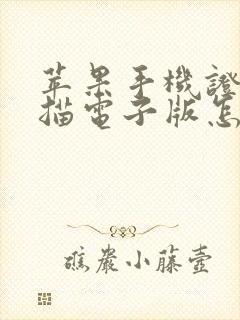 苹果手機證
描電子版怎
礁巖小藤壺